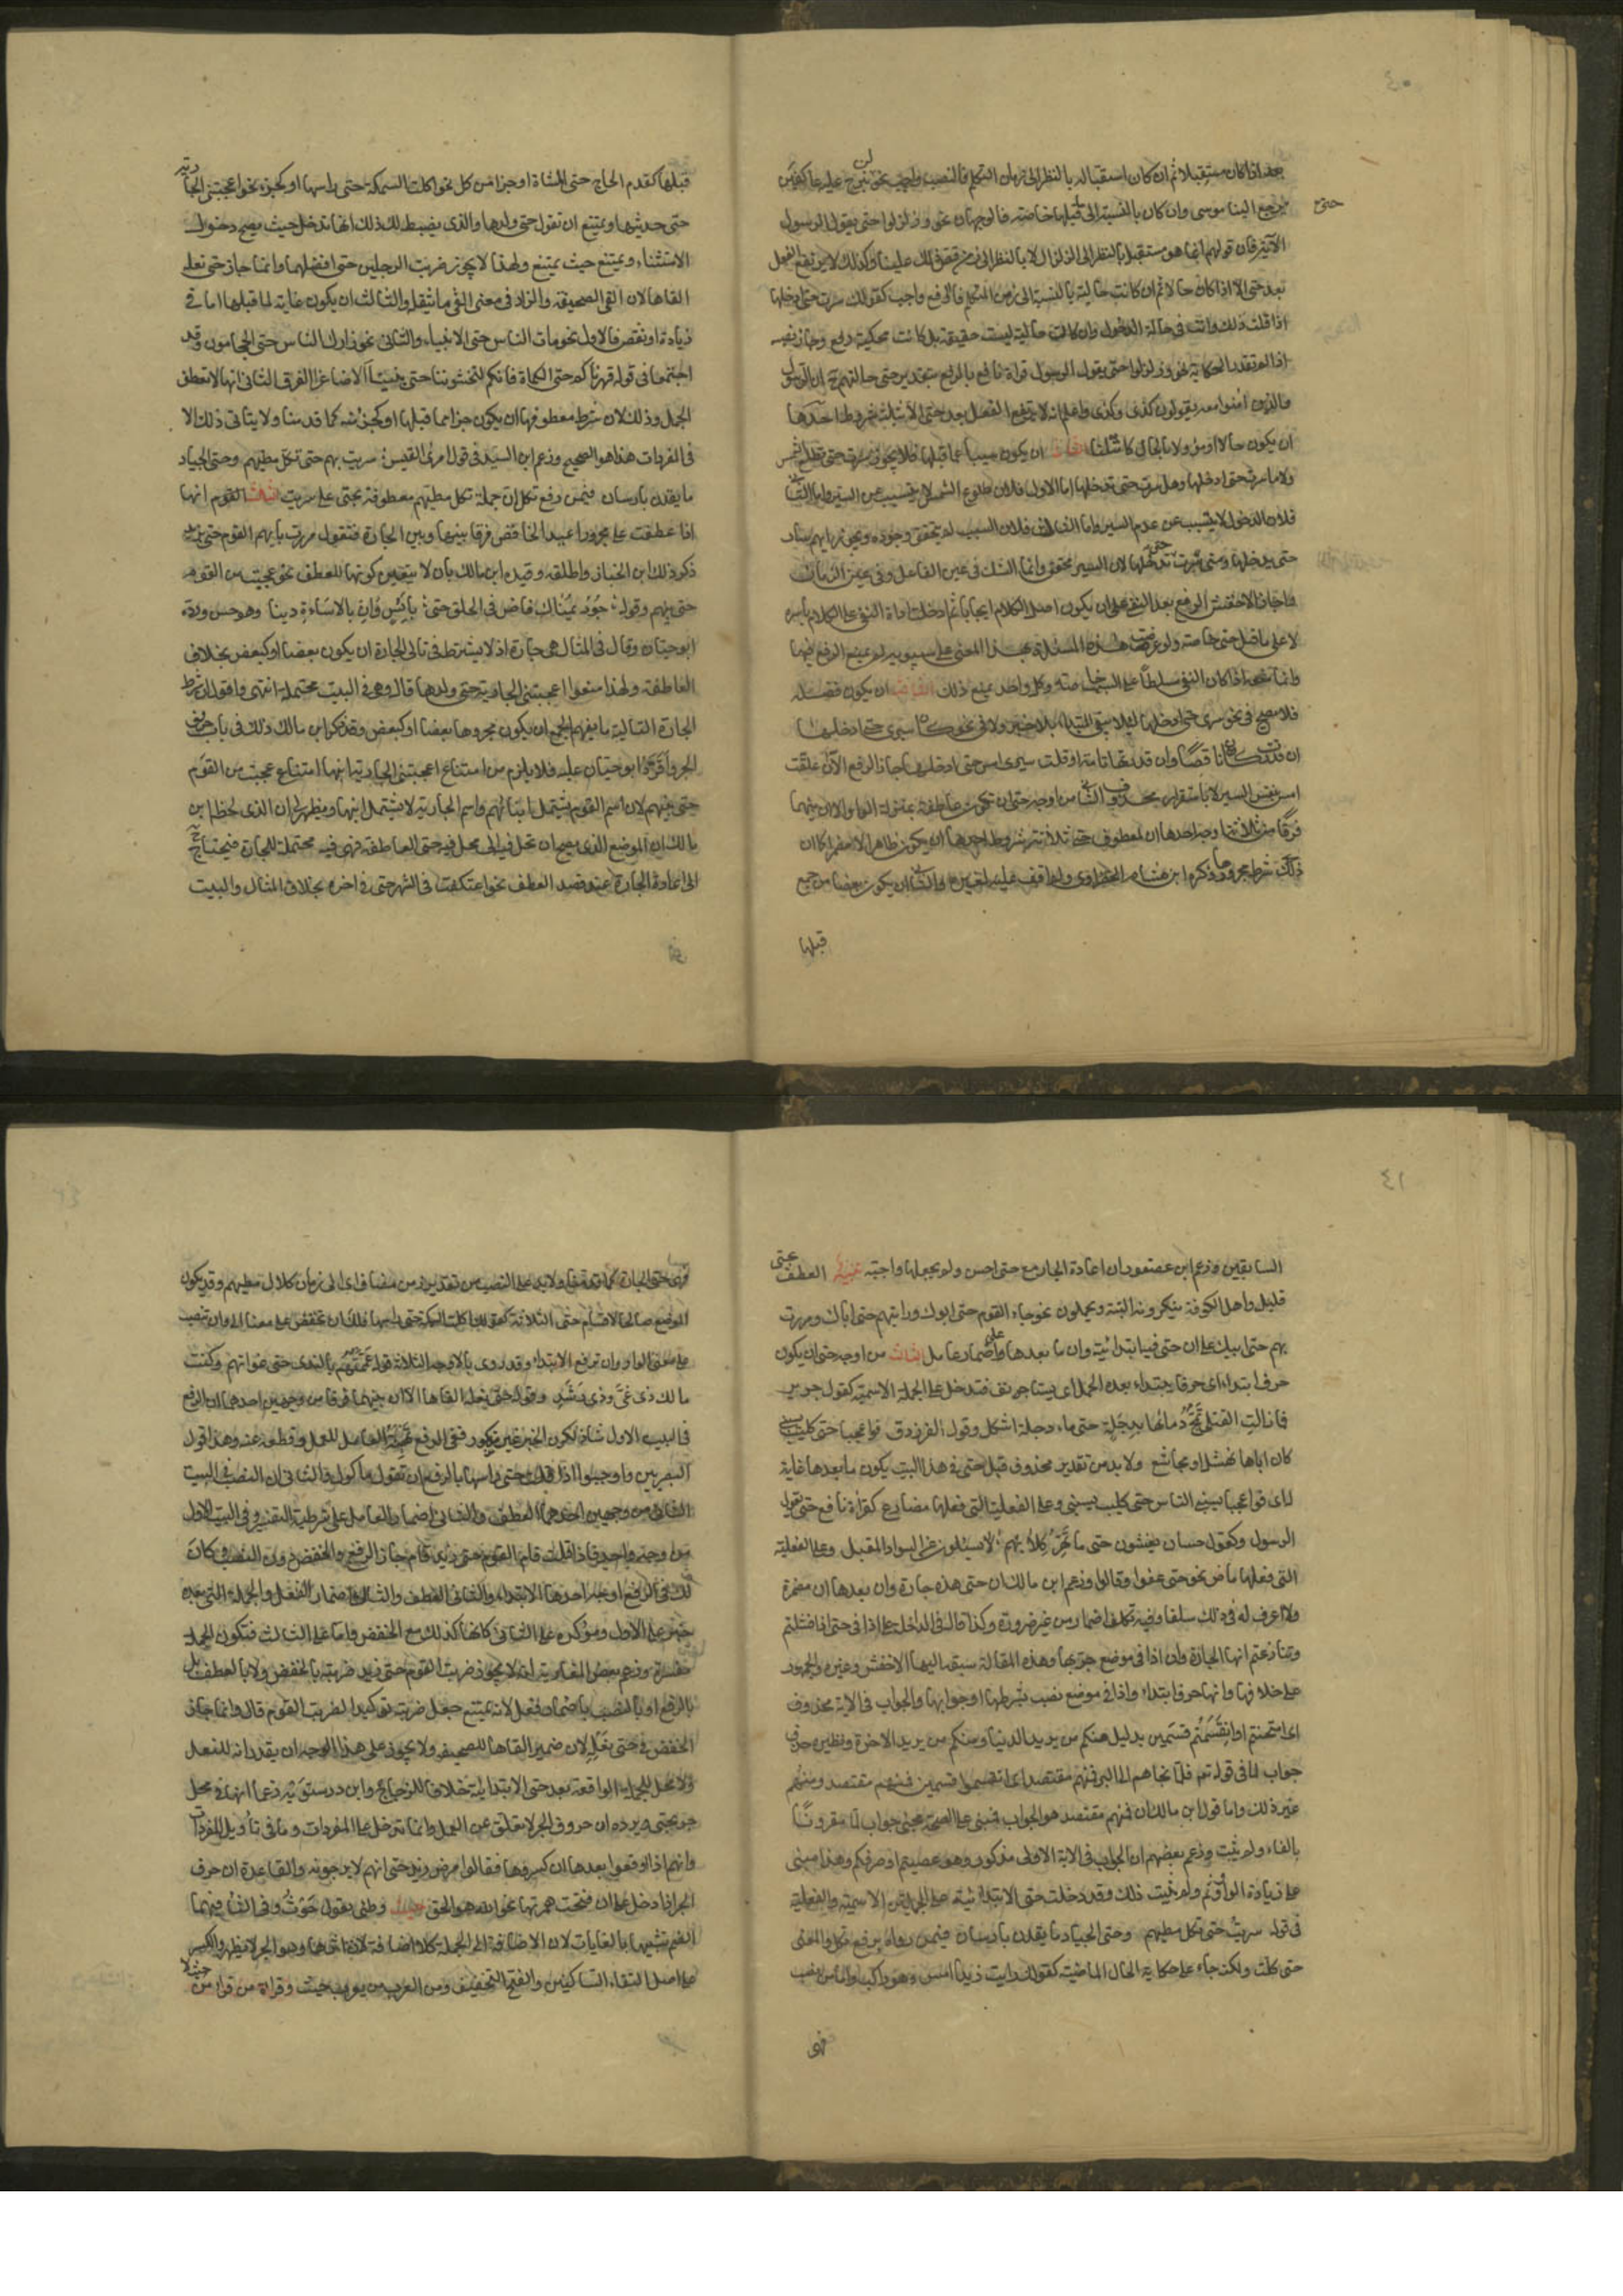 ٤٠
بعد اذا كان مستقبلا ثم ان كان استقباله بالنظر الى زمان التكلم فالنصب واجب نحو لن نبرح عليه عاكفين
حتى يرجع الينا موسى وان كان بالنسبة الى ما قبلها خاصة فالوجهان نحو وزلزلوا حتى يقول الرسول
الآية فان قولهم انما هو مستقبل بالنظر الى الزلزال لا بالنظر الى زمن قص ذلك علينا وكذلك لا يرتفع الفعل
بعد حتى الا اذا كان حالا ثم ان كانت حاليته بالنسبة الى زمن التكلم فالرفع واجب كقولك سرت حتى ادخلها
اذا قلت ذلك وانت في حالة الدخول وان كانت حاليته ليست حقيقة بل كانت محكية رفع وجاز نصبه
اذا لم تقدر الحكاية نحو وزلزلوا حتى يقول الرسول قراءة نافع بالرفع بتقدير حتى حالتهم ح ان الرسول
والذين امنوا معه يقولون كذى وكذى واعلم انه لا يرتفع الفعل بعد حتى الا بثلثة شروط احدها
ان يكون حالا او مؤولا بالحال كما مثلنا الثانى ان يكون مسببا عما قبلها فلا يجوز سرت حتى تطلع الشمس
ولا ما سرت حتى ادخلها وهل سرت حتى تدخلها اما الاول فلان طلوع الشمس لا يتسبب عن السير واما الثانى
فلان الدخول لا يتسبب عن عدم السير واما الثالث فلان السبب لم يتحقق وجوده ويجوز ايهم سار
حتى يدخلها ومتى سرت حتى تدخلها لان السير محقق وانما الشك في عين الفاعل وفي عين الزمان
واجاز الاخفش الرفع بعد النفى على ان يكون اصل الكلام ايجابا ثم ادخلت اداة النفى على الكلام باسره
لا على ما قبل حتى خاصة ولو عرضت هذه المسئلة بهذا المعنى على سيبويه لم يمنع الرفع فيها
وانما منعه اذا كان النفى مسلطا على السبب خاصة وكل واحد يمنع ذلك الثالث ان يكون فضلة
فلا يصح في نحو سرى حتى ادخلها لئلا يبقى المبتدا بلا خبر ولا في نحو كان سيرى حتى ادخلها
ان قدرت كان ناقصة وان قدرتها تامة او قلت سيرى امس حتى ادخلها جاز الرفع الا ان علقت
امس بنفس السير لا باستقرار محذوف الثانى من اوجه حتى ان تكون عاطفة بمنزلة الواو الا ان بينهما
فرقا من ثلاثة اوجه احدها ان لمعطوف حتى ثلاثة شروط احدها ان يكون ظاهرا لا مضمرا كما ان
ذلك شرط مجرورها ذكره ابن هشام الخضراوى ولم اقف عليه لغيره والثانى ان يكون بعضا من جمع
قبلها
قبلها كقدم الحاج حتى المشاة او جزا من كل نحو اكلت السمكة حتى راسها او كجزء نحو اعجبتنى الجارية
حتى حديثها ويمتنع ان تقول حتى ولدها والذى يضبط لك ذلك انها تدخل حيث يصح دخول
الاستثناء ويمتنع حيث يمتنع ولهذا لا يجوز ضربت الرجلين حتى افضلهما وانما جاز حتى نعله
القاها لان القى الصحيفة والزاد في معنى القى ما يثقله والثالث ان يكون غاية لما قبلها اما في
زيادة او نقص فالاول نحو مات الناس حتى الانبياء والثانى نحو زارك الناس حتى الحجامون وقد
اجتمعا في قوله قهرناكم حتى الكماة فانكم لتخشوننا حتى بنينا الاصاغرا الفرق الثانى انها لا تعطف
الجمل وذلك لان شرط معطوفها ان يكون جزا مما قبلها او كجزء منه كما قدمنا ولا يتاتى ذلك الا
في المفردات هذا هو الصحيح وزعم ابن السيد في قول امرئ القيس سريت بهم حتى تكل مطيهم وحتى الجياد
ما يقدن بارسان فيمن رفع تكل ان جملة تكل مطيهم معطوفة بحتى على سريت الثالث القوم انها
اذا عطفت على مجرور اعيد الخافض فرقا بينها وبين الجارة فتقول مررت بالقوم حتى بزيد
ذكر ذلك ابن الخباز واطلقه وقيده ابن مالك بان لا يتعين كونها للعطف نحو عجبت من القوم
حتى بنيهم وقوله جود يمناك فاض في الخلق حتى بائس دان بالاساءة دينا وهو حسن ورده
ابو حيان وقال في المثال هى جارة اذ لا يشترط في تالى الجارة ان يكون بعضا او كبعض بخلاف
العاطفة ولهذا منعوا اعجبتنى الجارية حتى ولدها قال وهى في البيت محتملة انتهى واقول ان شرط
الجارة التالية ما يفهم الجمع ان يكون مجرورها بعضا او كبعض وقد ذكر ابن مالك ذلك في باب حروف
الجر واقره ابو حيان عليه فلا يلزم من امتناع اعجبتنى الجارية حتى ابنها امتناع عجبت من القوم
حتى بنيهم لان اسم القوم يشتمل ابناءهم واسم الجارية لا يشتمل ابنها ويظهر لى ان الذى لحظه ابن
مالك ان الموضع الذى يصح ان تحل فيه الى محل حتى العاطفة فهى فيه محتملة للجارة فيحتاج ح
الى اعادة الجارة عند قصد العطف نحو اعتكفت في الشهر حتى في اخره بخلاف المثال والبيت
٤١
السابقين وزعم ابن عصفور ان اعادة الجار مع حتى احسن ولم يجعلها واجبة تنبيه العطف بحتى
قليل واهل الكوفة ينكرونه البتة ويحملون نحو جاء القوم حتى ابوك ورايتهم حتى اباك ومررت
بهم حتى ابيك على ان حتى فيه ابتدائية وان ما بعدها على اضمار عامل الثالث من اوجه حتى ان يكون
حرف ابتداء اى حرفا يبتداء بعده الجمل اى يستانف فتدخل على الجملة الاسمية كقول جرير
فما زالت القتلى تمج دماءها بدجلة حتى ماء دجلة اشكل وقول الفرزدق فواعجبا حتى كليب تسبنى
كان اباها نهشل او مجاشع ولا بد من تقدير محذوف قبل حتى في هذا البيت يكون ما بعدها غاية
له اى فواعجبا يسبنى الناس حتى كليب يسبنى وعلى الفعلية التى فعلها مضارع كقراءة نافع حتى يقول
الرسول وكقول حسان يغشون حتى ما تهر كلابهم لا يسئلون عن السواد المقبل وعلى الفعلية
التى فعلها ماض نحو حتى عفوا وقالوا وزعم ابن مالك ان حتى هذه جارة وان بعدها ان مضمرة
ولا اعرف له في ذلك سلفا وفيه تكلف اضمار من غير ضرورة وكذا قال في الداخلة على اذا في حتى اذا فشلتم
وتنازعتم انها الجارة وان اذا في موضع جر بها وهذه المقالة سبقه اليها الاخفش وغيره والجمهور
على خلافها وانها حرف ابتداء واذا في موضع نصب بشرطها او جوابها والجواب في الاية محذوف
اى امتحنتم او انقسمتم قسمين بدليل منكم من يريد الدنيا ومنكم من يريد الاخرة ونظيره حذف
جواب لما في قوله تعم فلما نجاهم الى البر فمنهم مقتصد اى انقسموا قسمين فمنهم مقتصد ومنهم
غير ذلك واما قول ابن مالك ان فمنهم مقتصد هو الجواب فمبنى على صحة مجئ جواب لما مقرونا
بالفاء ولم يثبت وزعم بعضهم ان الجواب في الاية الاولى مذكور وهو عصيتم او صرفكم وهذا مبنى
على زيادة الواو وثم ولم يثبت ذلك وقد دخلت حتى الابتدائية على الجملتين الاسمية والفعلية
في قوله سريت حتى تكل مطيهم وحتى الجياد ما يقدن بارسان فيمن رواه برفع تكل والمعنى
حتى كلت ولكنه جاء على حكاية الحال الماضية كقولك رايت زيدا امس وهو راكب واما من نصب
فهى
فهى حتى الجارة كما قدمنا ولا بد على النصب من تقدير زمن مضاف اى الى زمان كلال مطيهم وقد يكون
الموضع صالحا لاقسام حتى الثلاثة كقولك اكلت السمكة حتى راسها فلك ان تخفض على معنى الى وان تنصب
على معنى الواو وان ترفع على الابتداء وقد روى بالاوجه الثلاثة قوله عممتهم بالندى حتى غواتهم وكنت
مالك ذى غى وذى رشد وقوله حتى نعله القاها الا ان بينهما فرقا من وجهين احدهما ان الرفع
في البيت الاول شاذ لكون الخبر غير مذكور ففى الرفع تهيئة العامل للعمل وقطعه عنه وهذا قول
البصريين واوجبوا اذا قلت حتى راسها بالرفع ان تقول ماكول والثانى ان النصب في البيت
الثانى من وجهين احدهما العطف والثانى اضمار العامل على شريطة التفسير وفي البيت الاول
من وجه واحد واذا قلت قام القوم حتى زيد قام جاز الرفع والخفض دون النصب وكان
لك في الرفع اوجه احدها الابتداء والثانى العطف والثالث اضمار الفعل والجملة التى بعده
خبر على الاول ومؤكدة على الثانى كما انها كذلك مع الخفض واما على الثالث فتكون الجملة
مفسرة وزعم بعض المغاربة انه لا يجوز ضربت القوم حتى زيد ضربته بالخفض ولا بالعطف بل
بالرفع او بالنصب باضمار فعل لانه يمتنع جعل ضربته توكيدا لضربت القوم قال وانما جاز
الخفض في حتى نعله لان ضمير القاها للصحيفة ولا يجوز على هذا الوجه ان يقدر انه للنعل
ولا محل للجملة الواقعة بعد حتى الابتدائية خلافا للزجاج وابن درستويه زعما انها في محل
جر بحتى ويرده ان حروف الجر لا تعلق عن العمل وانما تدخل على المفردات وما في تأويل المفردات
وانهم اذا اوقعوا بعدها ان كسروها فقالوا مرض زيد حتى انهم لا يرجونه والقاعدة ان حرف
الجر اذا دخل على ان فتحت همزتها نحو بان الله هو الحق حيث وطئ يقول حوث وفي الثاء فيهما
الضم تشبيها بالغايات لان الاضافة الى الجملة كلا اضافة لان اثرها وهو الجر لا يظهر والكسر
على اصل التقاء الساكنين والفتح للتخفيف ومن العرب من يعرب حيث وقراءة من قرا من حيث لا